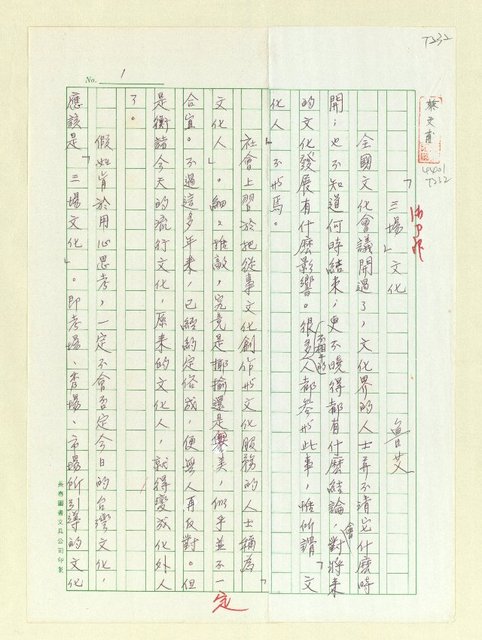 T232
No. 1
蔡文甫
T232
「三場」文化
魯艾
全國文化會議開過了，文化界的人士弄不清它什麼時
開；也不知道何時結束，更不曉得都有什麼結論，對將來
會
的文化發展有什麼影響。很多人都參加此事，惟所謂「文
不相干的
化人」不與焉。
社會上習於把從事文化創作和文化服務的人士稱為「
文化人」。細細推敲，究竟是揶揄還是讚美，似乎並不一定
合宜。不過這多年來，已經約定俗成，便無人再反對。但
是衡諸今天的流行文化，原來的文化人，就得變成化外人
了。
假如肯於用心思考，一定不會否定今日的台灣文化，
應該是「三場文化」。即考場、賣場、市場所引導的文化
長春圖書文具公司印製